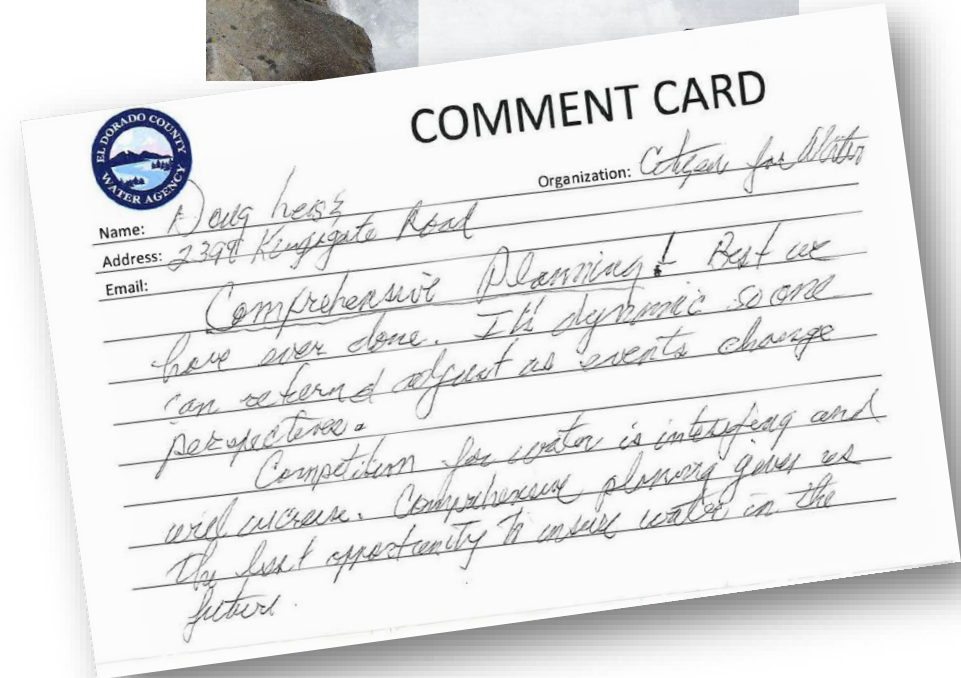 COMMENT CARD
EL DORADO COUNTY
WATER AGENCY
Organization: for Water
Name: Doug
Address: 2399 Kingsgate Road
Email:
Comprehensive Planning! Best we
have ever done. It's dynamic so one
can return & adjust as events change
perspectives.
Competition for water is intensifying and
will increase. Comprehensive planning gives us
the best opportunity to insure water in the
future.